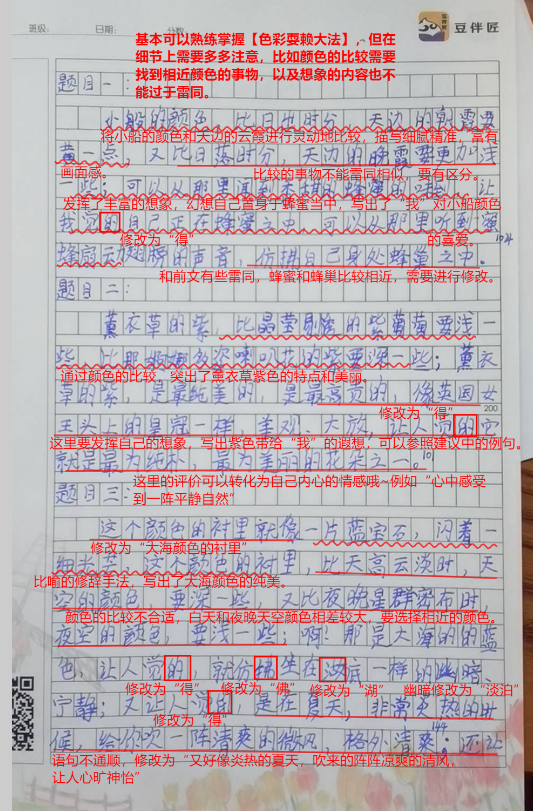 班级: 日期: 分数 豆伴匠
基本可以熟练掌握【色彩耍赖大法】,但在
细节上需要多多注意,比如颜色的比较需要
找到相近颜色的事物,以及想象的内容也不
能过于雷同。
题目一:
小船的颜色,比日出时分,天边的朝霞要
将小船的颜色和天边的云霞进行灵动地比较,描写细腻精准,富有
黄一点,又比日落时分,天边的晚霞要更加浅
画面感。 比较的事物不能雷同相似,要有区分。
一些;可以从那里闻到 蜂蜜的 让
发挥了丰富的想象,幻想自己置身于蜂巢当中,写出了“我”对小船颜色
我觉的自己正在蜂蜜之中,可以从那里听到蜜
修改为“得” 的喜爱。
蜂扇动翅膀的声音,仿拂自己身处蜂巢之中。
104
和前文有些雷同,蜂蜜和蜂巢比较相近,需要进行修改。
题目二:
薰衣草的紫,比晶莹剔透的紫葡萄要浅一
些,比那婀娜多姿喇叭花的紫要深一些;薰衣
通过颜色的比较,突出了薰衣草紫色的特点和美丽。
草的紫,是最纯美的,是最高贵的,像英国女
修改为“得”
200
王头上的皇冠一样,美观、大放,让人觉的它
这里要发挥自己的想象,写出紫色带给“我”的遐想,可以参照建议中的例句。
就是最为纯朴,最为美丽的花朵之一。
这里的评价可以转化为自己内心的情感哦~例如“心中感受
题目三:
到一阵平静自然”
这个颜色的衬里就像一片蓝宝石,闪着一
修改为“大海颜色的衬里”
细光芒,这个颜色的衬里,比天高云淡时,天
比喻的修辞手法,写出了大海颜色的纯美。
空的颜色,要深一些,又比夜晚星群密布时,
颜色的比较不合适,白天和夜晚天空颜色相差较大,要选择相近的颜色。
夜空的颜色,要浅一些;啊!那是大海的的蓝
色,让人觉的,就仿拂坐在 底一样的幽暗、
修改为“得” 修改为“佛” 修改为“湖” 幽暗修改为“淡泊”
宁静;又让人觉的,是在夏天,非常炎热的时
修改为“得”
候,给你吹一阵清爽的微风,格外清爽;还让
144
语句不通顺,修改为“又好像炎热的夏天,吹来的阵阵凉爽的清风,
让人心旷神怡”